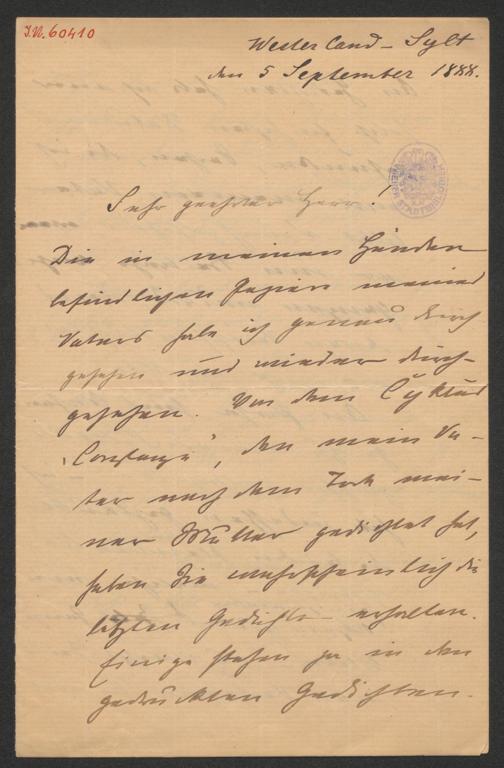 I.N. 60410
Westerland - Sylt
den 5 September 1888.
Sehr geehrter Herr!
Die in meinen Händen
befindlichen Papiere meines
Vaters habe ich genau durch
gesehen und wieder durch-
gesehen. Von dem Cyklus
„Constanze", den mein Va-
ter nach dem Tode mei-
ner Mutter gedichtet hat,
haben Sie wahrscheinlich die
letzten Gedichte erhalten.
Einige stehen ja in den
gedruckten Gedichten.